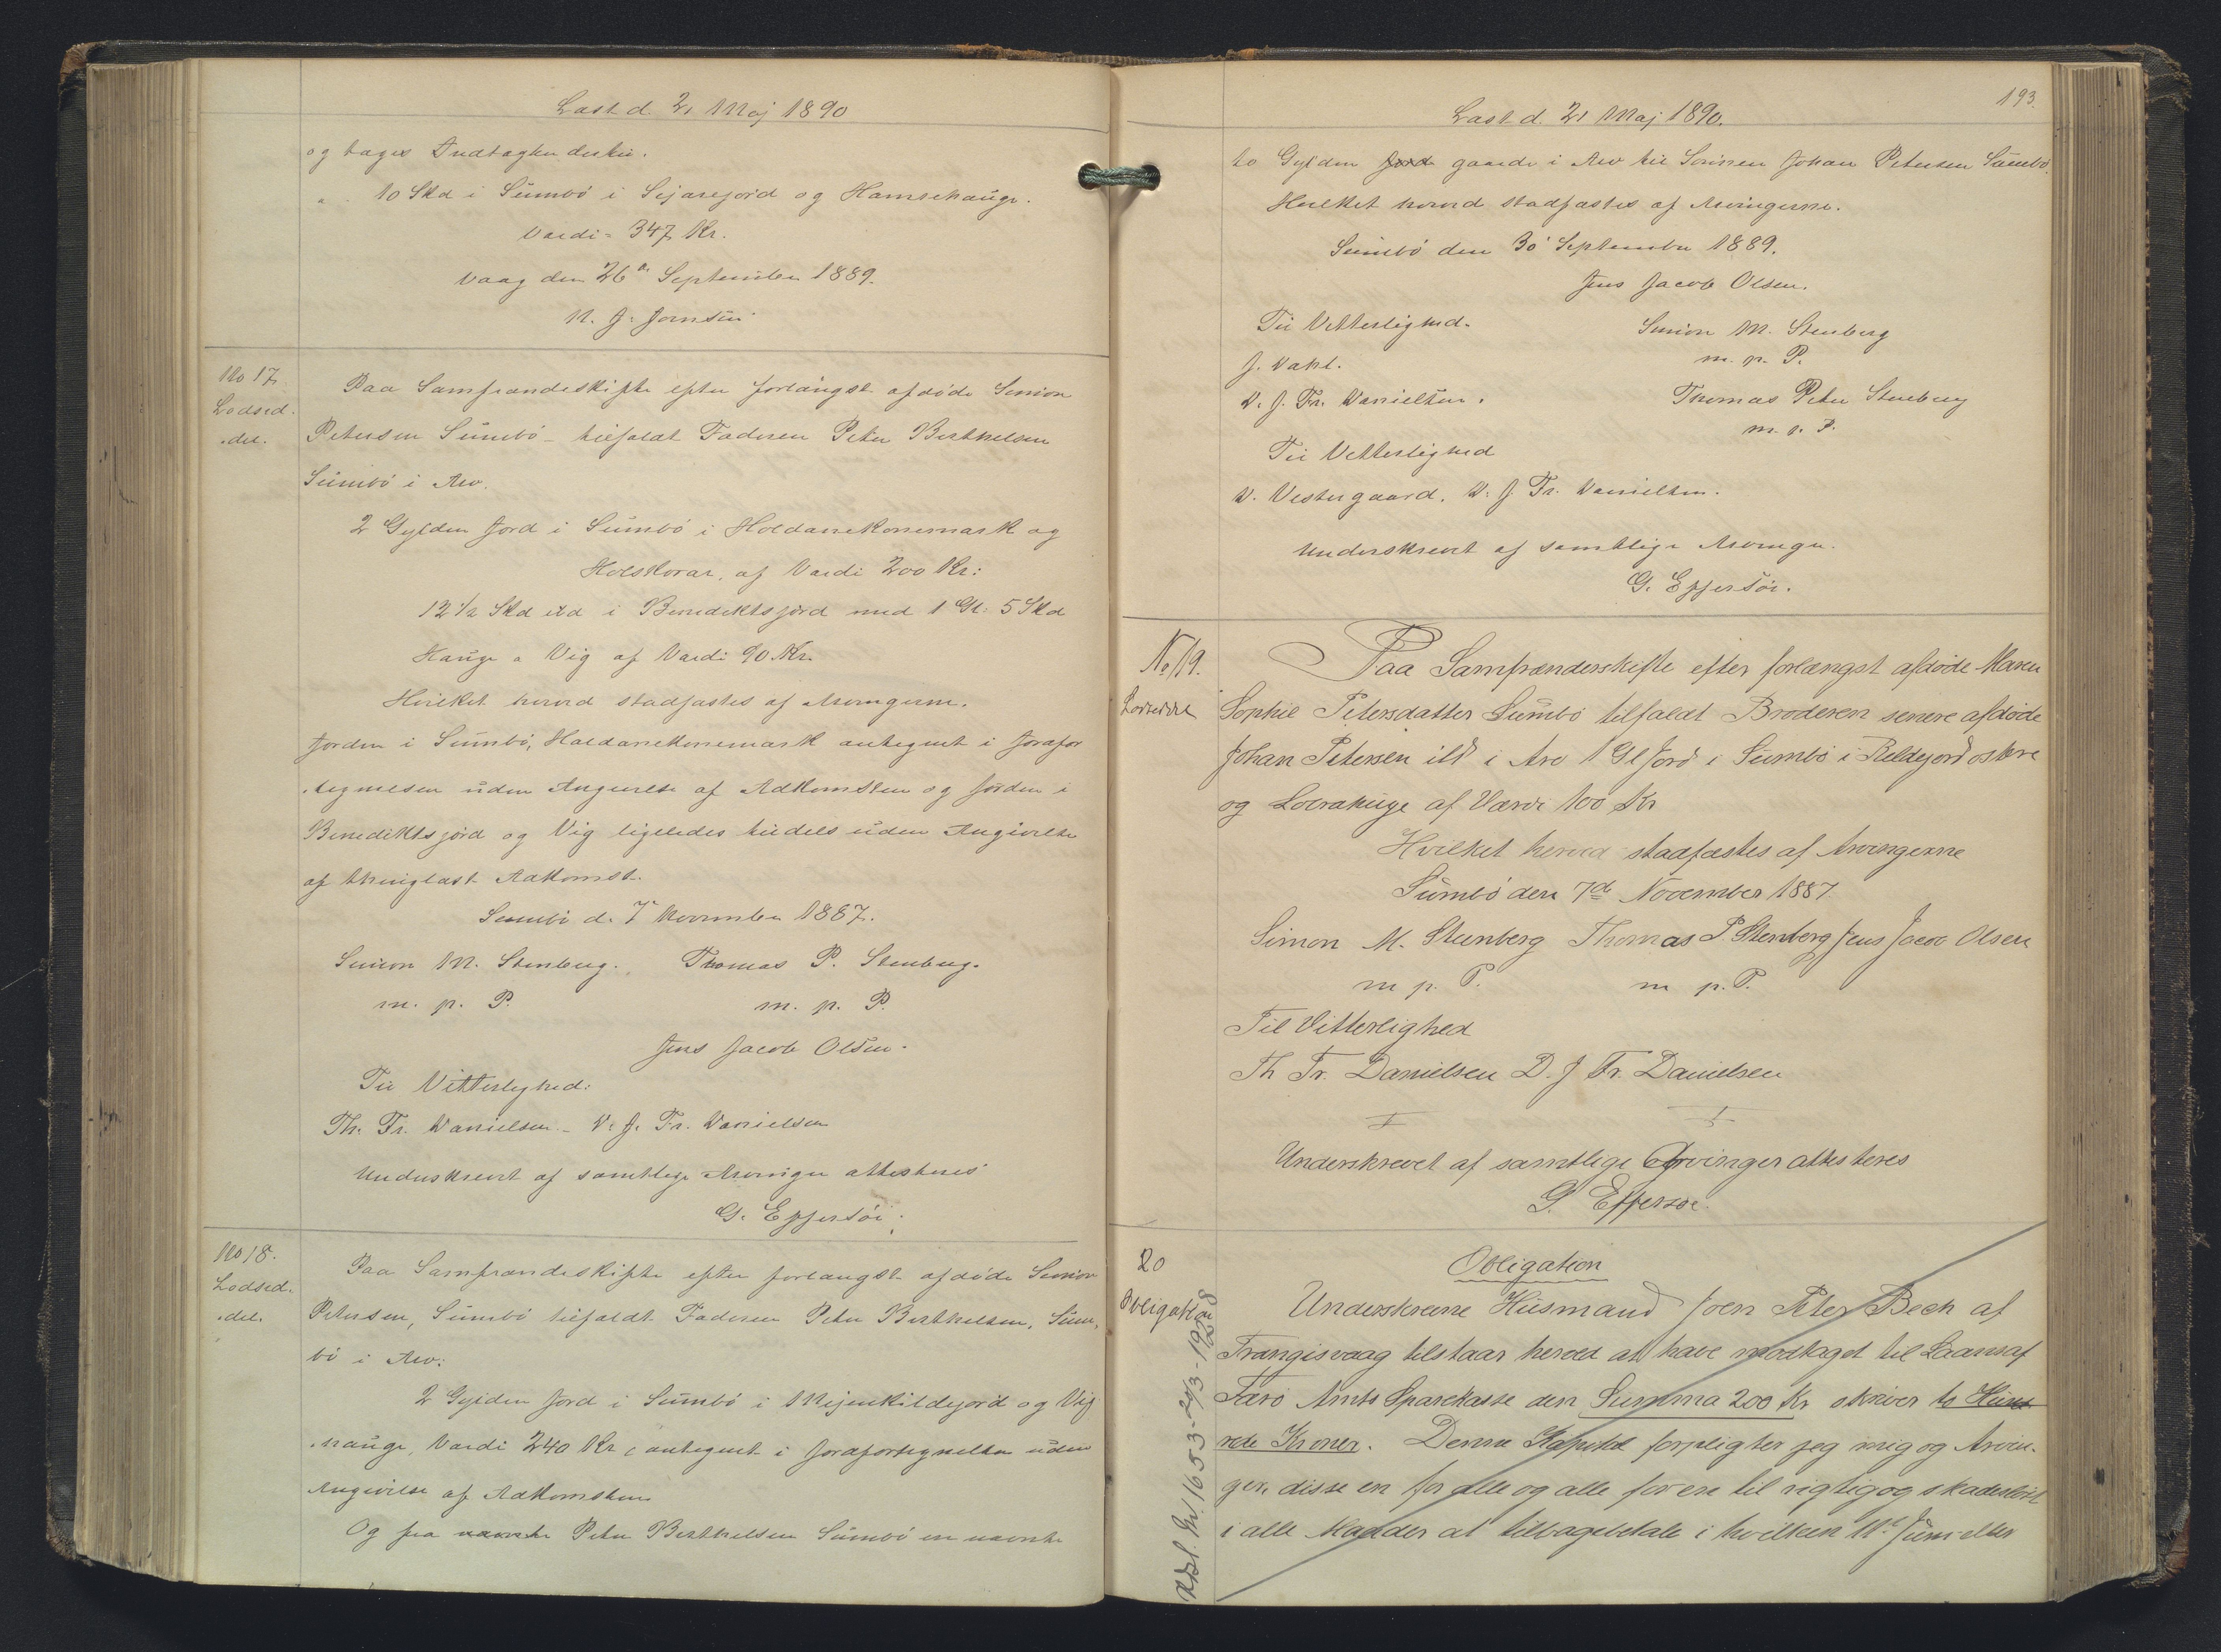 Læst d. 21 Maj 1890
og tages Indtægten deraf.
" 10 Skd i Sumbö i Sejaregjord og Hamrehauge.
Værdi = 347 Kr.
Vaag den 26de September 1889.
No 17.
Lodsed-
del.
Paa Samfrændeskifte efter forlængst afdöde Simion
Petersen Sumbö tilfaldt Faderen Peter Berthelsen
Sumbö i Arv.
2 Gylden Jord i Sumbö i Holdanekonemark og
Holskorar, af Værdi 200 Kr:
12 1/2 Skd ild i Benediktsjord med 1 Gl: 5 Skd
Hauge a Vig af Værdi 90 Kr.
Hvilket herved stadfæstes af Arvingerne.
Jorden i Sumbö, Haldanekonemark antegnet i Jordefor
tegnelsen uden Angivelse af Adkomsten og Jorden i
Benediktsjord og Vig ligeledes tildels uden Angivelse
af thinglæst Adkomst.
Sumbö d. 7 November 1887.
Simion M. Stenberg. Thomas P. Stenberg.
m. p. P. m. p. P.
Jens Jacob Olsen.
Til Vitterlighed:
Th. Fr. Danielsen - D. J. Fr. Danielsen
Underskrevet af samtlige Arvinger attesteres
G. Effersöe.
No 18.
Lodsed-
del.
Paa Samfrændeskifte efter forlængst afdöde Simion
Petersen, Sumbö tilfaldt Faderen Peter Berthelsen, Sum-
bö i Arv:
2 Gylden Jord i Sumbö i Mejenkildejord og Vig
hauge, Værdi 240 Kr, antegnet i Jordefortegnelsen uden
Angivelse af Adkomsten
Og fra nævnte Peter Berthelsen Sumbö er nævnte
193.
Læst d. 21 Maj 1890.
to Gylden Jord gaaede i Arv til Sönnen Johan Petersen Sumbö.
Hvilket herved stadfæstes af Arvingerne.
Sumbö den 30 September 1889.
Jens Jacob Olsen.
Til Vitterlighed. Simion M. Stenberg
m. p. P.
J. Dahl.
D. J. Fr. Danielsen. Thomas Peter Stenberg
m. p. P.
Til Vitterlighed
D. Vestergaard. D. J. Fr. Danielsen.
Underskrevet af samtlige Arvinger.
G. Effersöe.
No 19.
Lodseddel
Paa Samfrænderskifte efter forlængst afdöde Maren
Sophie Petersdatter Sumbö tilfaldt Broderen senere afdöde
Johan Petersen ild i Arv 1 Gl Jord i Sumbö i Reldejord östre
og Lovrahuge af Værdi 100 Kr
Hvilket herved stadfæstes af Arvingerne
Sumbö den 7de November 1887.
Simon M. Stenberg Thomas P. Stenberg Jens Jacob Olsen
m p. P. m p. P.
Til Vitterlighed
Th Fr. Danielsen D. J Fr. Danielsen
Underskrevet af samtlige Arvinger attesteres
G. Effersöe.
20
Obligation
Obligation
Underskrevne Husmand Joen Peter Bech af
Trangisvaag tilstaar herved at have modtaget til Laans af
Færö Amts Sparekasse den Summa 200 Kr skriver to Hund
rede Kroner. Denne Kapital forpligter jeg mig og Arvin-
ger, disse en for alle og alle for en til rigtig og skadeslöst
i alle Maader at tilbagebetale i hvilken 11te Juni eller
Udsl. Nr. 1653 - 24/3 - 1928